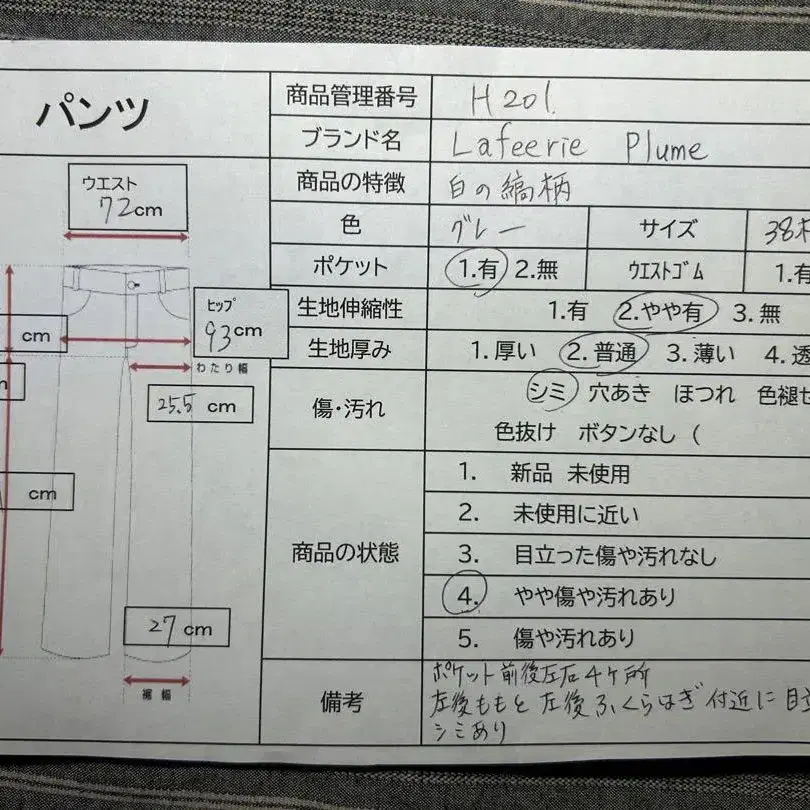 パンツ
商品管理番号 H201.
ブランド名 Lafeerie Plume
商品の特徴 白の縞柄
色 グレー サイズ 38
ポケット 1.有 2.無 ウエストゴム 1.有
生地伸縮性 1.有 2.やや有 3.無
生地厚み 1.厚い 2.普通 3.薄い 4.透
傷・汚れ シミ 穴あき ほつれ 色褪せ
色抜け ボタンなし (
商品の状態
1. 新品 未使用
2. 未使用に近い
3. 目立った傷や汚れなし
4. やや傷や汚れあり
5. 傷や汚れあり
備考
ポケット前後左右4ケ所
左後ももと左後ふくらはぎ付近に目立
シミあり
ウエスト
72cm
ヒップ
93cm
cm
わたり幅
25.5 cm
cm
27 cm
裾幅